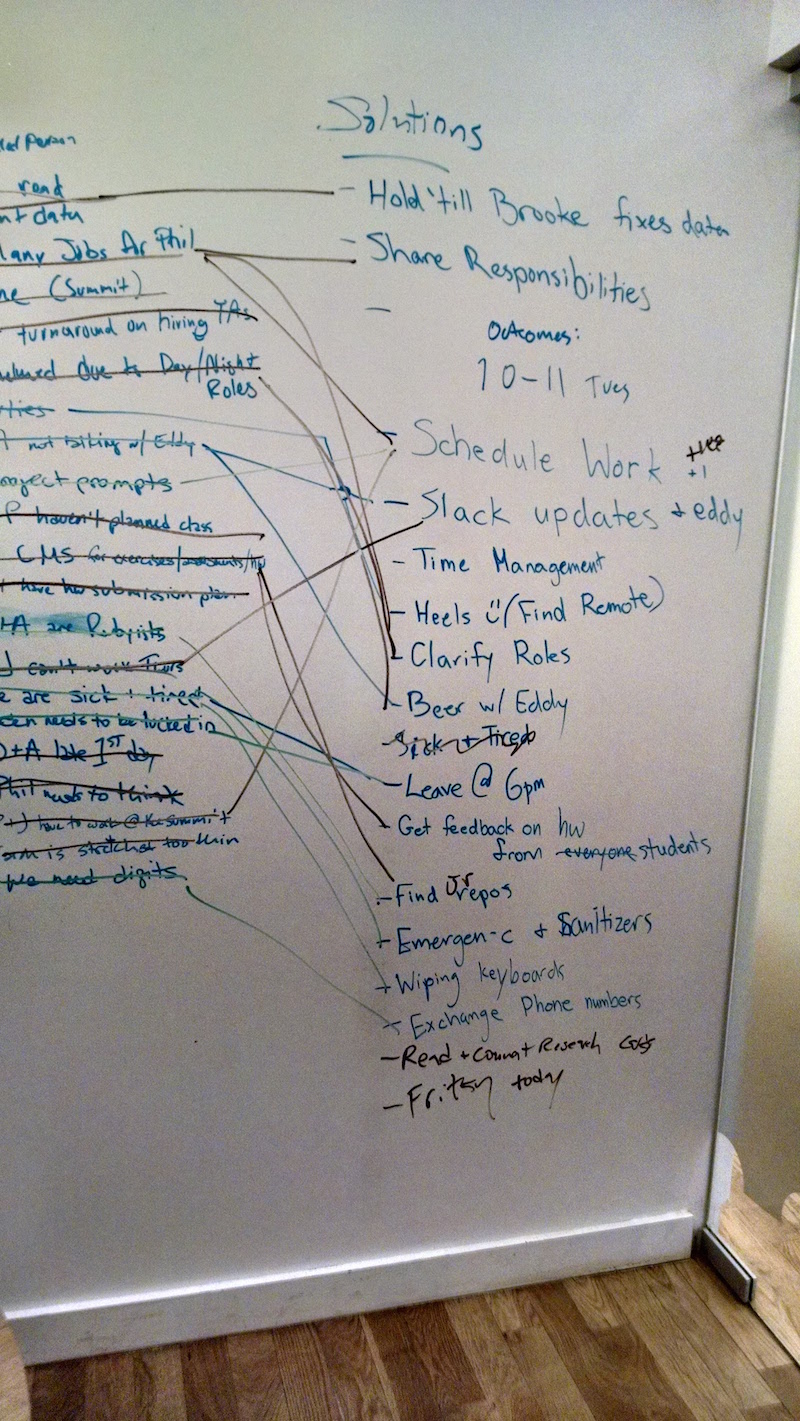 Person
read
data
Jobs for Phil
(Summit)
turnaround on hiring TAs
due to Day/Night
Roles
not biking w/ Eddy
project prompts
haven't planned class
CMS for exercises/assessments/hw
have hw submission plan
are Rubyists
can't work Thurs
are sick + tired
needs to be locked in
+A late 1st day
Phil needs to think
have to work @ Kx summit
team is stretched too thin
We need digits
Solutions
- Hold 'till Brooke fixes data
- Share Responsibilities
-
Outcomes:
10-11 Tues
- Schedule Work
+1
- Slack updates + eddy
- Time Management
- Heels (Find Remote)
- Clarify Roles
- Beer w/ Eddy
- Sick + Tired
- Leave @ 6pm
- Get feedback on hw
from everyone students
- Find Jr repos
- Emergen-c + Sanitizers
- Wiping keyboards
- Exchange Phone numbers
- Read + Research
- today